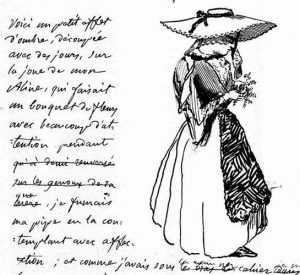 Voici un petit effet
d'ombre, découpée
avec des jours, sur
la joue de mon
Aline, qui faisait
un bouquet de fleurs
avec beaucoup d'at:
:tention pendant
qu'à demi renversé
sur les genoux de sa
que
je fumais
ma pipe en la con:
:templant avec affec:
:xtion ; et comme j'avais sous
cahier